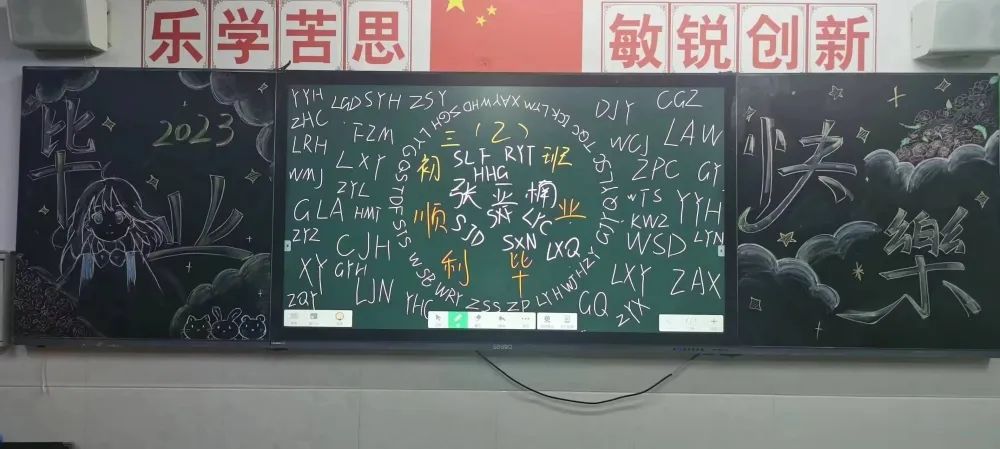 乐学苦思
敏锐创新
毕业
2023
快樂
YYH
LGD
SYH
ZSY
DJY
CGZ
ZHC
FZM
WCJ
LAW
LRH
LXY
ZPC
GY
WMJ
ZYL
WTS
YYH
GLA
HMT
KWZ
ZYZ
CJH
WSD
LYN
XY
GYH
LXY
ZAX
ZQY
LJN
YHG
GQ
ZYX
初三（2）班
顺利毕业
SLF
RYT
HHG
张亚楠
SXF
LYC
SJD
SXN
LXQ
GGS
TDF
SYS
WSB
WRY
ZSS
ZP
LYH
WJH
ZY